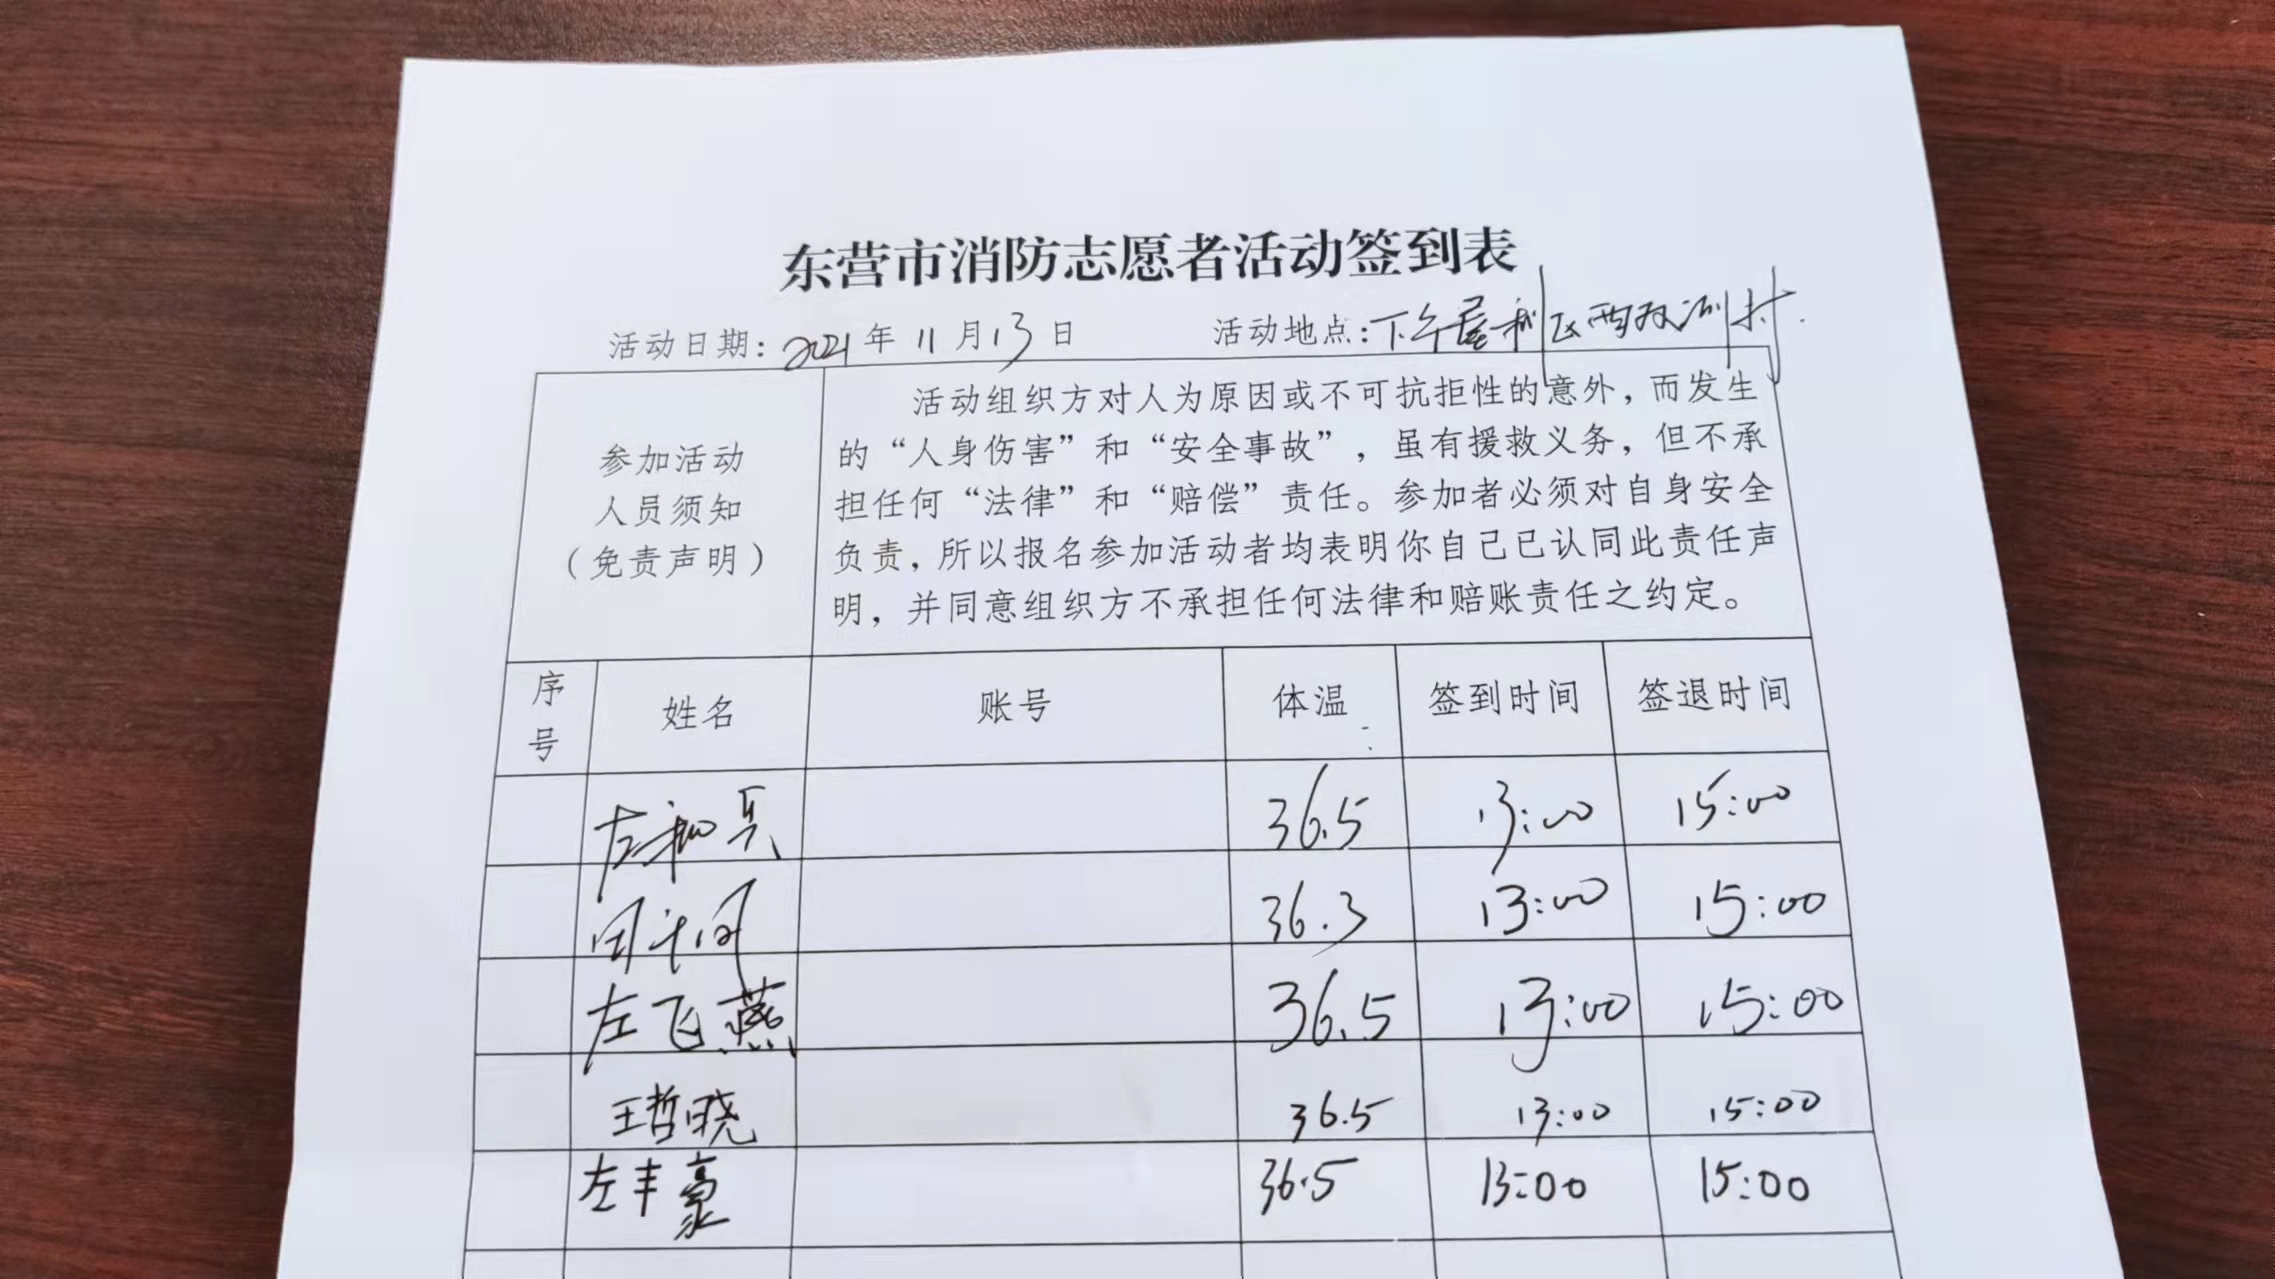 东营市消防志愿者活动签到表
活动日期：2021年11月13日 活动地点：下午垦利区西双河村
参加活动
人员须知
（免责声明）
活动组织方对人为原因或不可抗拒性的意外，而发生
的“人身伤害”和“安全事故”，虽有援救义务，但不承
担任何“法律”和“赔偿”责任。参加者必须对自身安全
负责，所以报名参加活动者均表明你自己已认同此责任声
明，并同意组织方不承担任何法律和赔账责任之约定。
序号 姓名 账号 体温 签到时间 签退时间
左和兵 36.5 13:00 15:00
36.3 13:00 15:00
左飞燕 36.5 13:00 15:00
王哲晓 36.5 13:00 15:00
左丰豪 36.5 13:00 15:00